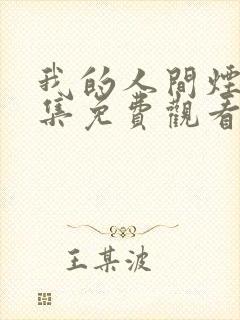 我的人間煙
集免費觀看
王某波